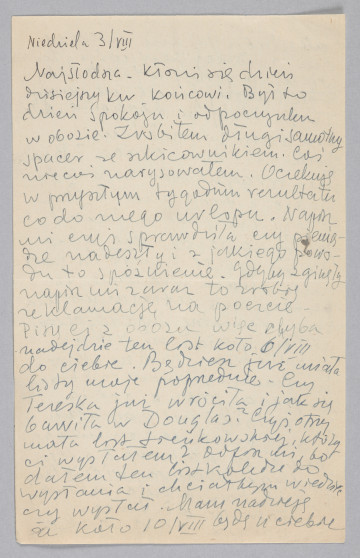 Niedziela 3/VIII
Najsłodsza – Kłoni się dzień
dzisiejszy ku końcowi. Był to
dzień spokoju i odpoczynku
w obozie. Zrobiłem długi samotny
spacer ze szkicownikiem. Coś
niecoś narysowałem. Oczekuję
w przyszłym tygodniu rezultatu
co do mego urlopu. Napisz
mi czyś sprawdziła czy pienią-
ze nadeszły i z jakiego powo-
du to spóźnienie. Gdyby zginęły
napisz mi zaraz to zrobię
reklamację na poczcie.
Piszę z obozu więc chyba
nadejdzie ten list koło 6/VIII
do ciebie. Będziesz już miała
listy moje poprzednie. Czy
Tereska już wróciła i jak się
bawiła w Douglas? Czyś otrzy
mała list Sieńkowskiej, który
ci wysłałem? odpisz mi, bo
dałem ten list koledze do
wysłania i chciałbym wiedzieć
czy wysłał. Mam nadzieję
że koło 10/VIII będę u ciebie